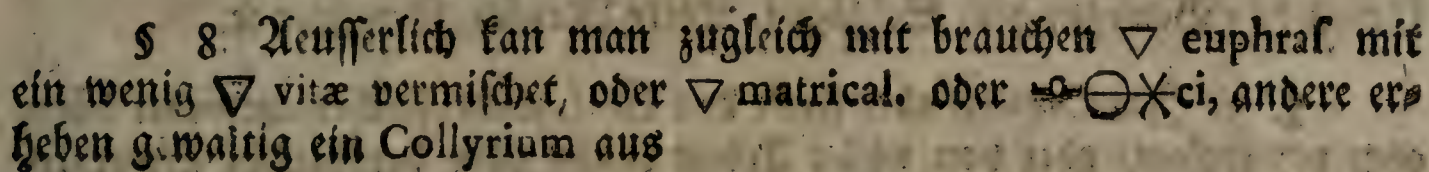 § 8. Aeuſſerlich kan man zugleich mit brauchen 🜄 euphraſ. mit
ein wenig 🜄 vitæ vermiſchet, oder 🜄 matrical. oder 🜔🞶ci, andere er⸗
heben gewaltig ein Collyrium aus